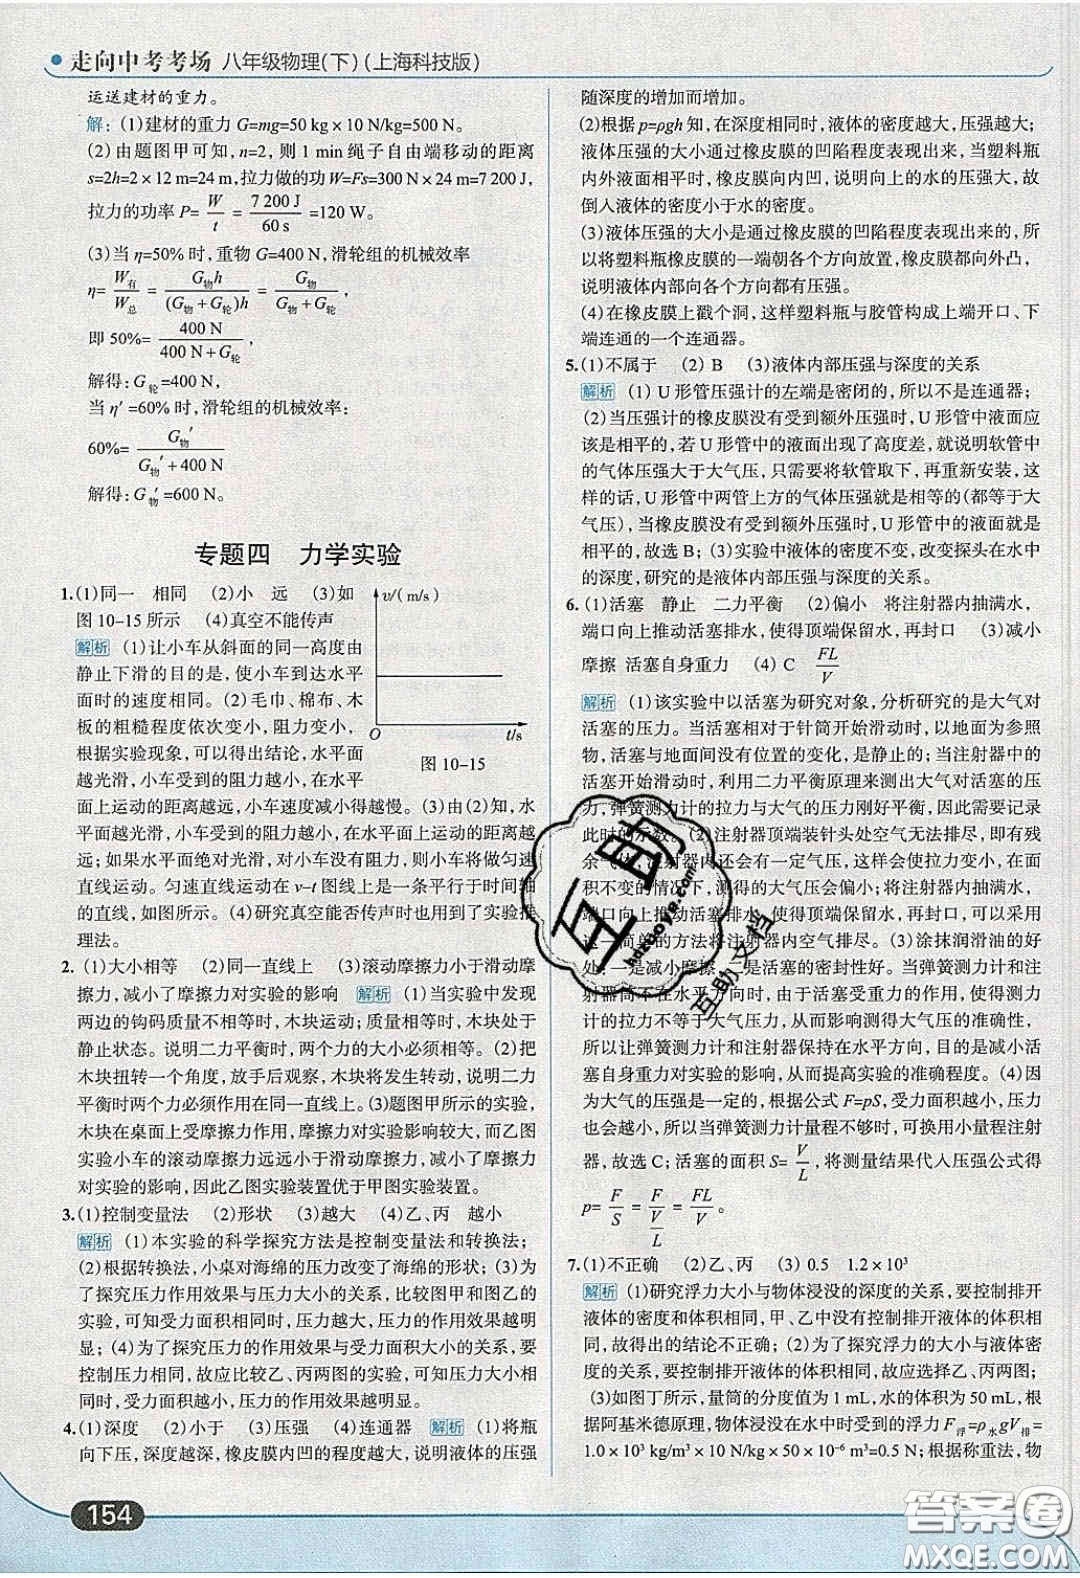 走向中考考场 八年级物理(下)(上海科技版)
运送建材的重力。
解:(1)建材的重力 G=mg=50 kg×10 N/kg=500 N。
(2)由题图甲可知,n=2,则 1 min绳子自由端移动的距离
s=2h=2×12 m=24 m,拉力做的功 W=Fs=300 N×24 m=7 200 J,
拉力的功率 P= W/t = 7 200 J/60 s =120 W。
(3)当 η=50%时,重物 G=400 N,滑轮组的机械效率
η= W有/W总 = G物h/(G物+G轮)h = G物/G物+G轮,
即 50%= 400 N/400 N+G轮,
解得:G轮=400 N,
当 η′=60%时,滑轮组的机械效率:
60%= G物′/G物′+400 N
解得:G物′=600 N。
专题四 力学实验
1.(1)同一 相同 (2)小 远 (3)如
图 10-15 所示 (4)真空不能传声
解析 (1)让小车从斜面的同一高度由
静止下滑的目的是,使小车到达水平
面时的速度相同。(2)毛巾、棉布、木
板的粗糙程度依次变小,阻力变小,
根据实验现象,可以得出结论,水平面
越光滑,小车受到的阻力越小,在水平
v/(m/s)
O
t/s
图 10-15
面上运动的距离越远,小车速度减小得越慢。(3)由(2)知,水
平面越光滑,小车受到的阻力越小,在水平面上运动的距离越
远;如果水平面绝对光滑,对小车没有阻力,则小车将做匀速
直线运动。匀速直线运动在 v-t 图线上是一条平行于时间轴
的直线,如图所示。(4)研究真空能否传声时也用到了实验推
理法。
2. (1)大小相等 (2)同一直线上 (3)滚动摩擦力小于滑动摩
擦力,减小了摩擦力对实验的影响 解析 (1)当实验中发现
两边的钩码质量不相等时,木块运动;质量相等时,木块处于
静止状态。说明二力平衡时,两个力的大小必须相等。(2)把
木块扭转一个角度,放手后观察,木块将发生转动,说明二力
平衡时两个力必须作用在同一直线上。(3)题图甲所示的实验,
木块在桌面上受摩擦力作用,摩擦力对实验影响较大,而乙图
实验小车的滚动摩擦力远远小于滑动摩擦力,减小了摩擦力
对实验的影响,因此乙图实验装置优于甲图实验装置。
3.(1)控制变量法 (2)形状 (3)越大 (4)乙、丙 越小
解析 (1)本实验的科学探究方法是控制变量法和转换法;
(2)根据转换法,小桌对海绵的压力改变了海绵的形状;(3)为
了探究压力作用效果与压力大小的关系,比较图甲和图乙的
实验,可知受力面积相同时,压力越大,压力的作用效果越明
显;(4)为了探究压力的作用效果与受力面积大小的关系,要
控制压力相同,故应比较乙、丙两图的实验,可知压力大小相
同时,受力面积越小,压力的作用效果越明显。
4.(1)深度 (2)小于 (3)压强 (4)连通器 解析 (1)将瓶
向下压,深度越深,橡皮膜内凹的程度越大,说明液体的压强
随深度的增加而增加。
(2)根据 p=ρgh 知,在深度相同时,液体的密度越大,压强越大;
液体压强的大小通过橡皮膜的凹陷程度表现出来,当塑料瓶
内外液面相平时,橡皮膜向内凹,说明向上的水的压强大,故
倒入液体的密度小于水的密度。
(3)液体压强的大小是通过橡皮膜的凹陷程度表现出来的,所
以将塑料瓶橡皮膜的一端朝各个方向放置,橡皮膜都向外凸,
说明液体内部向各个方向都有压强。
(4)在橡皮膜上戳个洞,这样塑料瓶与胶管构成上端开口、下
端连通的一个连通器。
5.(1)不属于 (2) B (3)液体内部压强与深度的关系
解析 (1) U 形管压强计的左端是密闭的,所以不是连通器;
(2)当压强计的橡皮膜没有受到额外压强时,U 形管中液面应
该是相平的,若 U 形管中的液面出现了高度差,就说明软管中
的气体压强大于大气压,只需要将软管取下,再重新安装,这
样的话,U 形管中两管上方的气体压强就是相等的(都等于大
气压),当橡皮膜没有受到额外压强时,U 形管中的液面就是
相平的,故选 B;(3)实验中液体的密度不变,改变探头在水中
的深度,研究的是液体内部压强与深度的关系。
6. (1)活塞 静止 二力平衡 (2)偏小 将注射器内抽满水,
端口向上推动活塞排水,使得顶端保留水,再封口 (3)减小
摩擦 活塞自身重力 (4) C FL/V
解析 (1)该实验中以活塞为研究对象,分析研究的是大气对
活塞的压力。当活塞相对于针筒开始滑动时,以地面为参照
物,活塞与地面间没有位置的变化,是静止的;当注射器中的
活塞开始滑动时,利用二力平衡原理来测出大气对活塞的压
力,弹簧测力计的拉力与大气的压力刚好平衡,因此需要记录
此时的示数。(2)注射器顶端装针头处空气无法排尽,即有残
余气体,注射器内还会有一定气压,这样会使拉力变小,在面
积不变的情况下,测得的大气压会偏小;将注射器内抽满水,
端口向上推动活塞排水,使得顶端保留水,再封口,可以采用
这一简单的方法将注射器内空气排尽。(3)涂抹润滑油的好
处:一是减小摩擦,二是活塞的密封性好。当弹簧测力计和注
射器筒不在水平方向时,由于活塞受重力的作用,使得测力
计的拉力不等于大气压力,从而影响测得大气压的准确性,
所以让弹簧测力计和注射器保持在水平方向,目的是减小活
塞自身重力对实验的影响,从而提高实验的准确程度。(4)因
为大气的压强是一定的,根据公式 F=pS,受力面积越小,压力
也会越小,所以当弹簧测力计量程不够时,可换用小量程注射
器,故选 C;活塞的面积 S= V/L,将测量结果代入压强公式得
p= F/S = F/(V/L) = FL/V。
7.(1)不正确 (2)乙、丙 (3) 0.5 1.2×10³
解析 (1)研究浮力大小与物体浸没的深度的关系,要控制排开
液体的密度和体积相同,甲、乙中没有控制排开液体的体积相
同,故得出的结论不正确;(2)为了探究浮力的大小与液体密
度的关系,要控制排开液体的体积相同,故应选择乙、丙两图;
(3)如图丁所示,量筒的分度值为 1 mL,水的体积为 50 mL,根
据阿基米德原理,物体浸没在水中时受到的浮力 F浮=ρ水gV排=
1.0×10³ kg/m³×10 N/kg×50×10⁻⁶ m³=0.5 N;根据称重法,物
154
互助
hdzuoye.com
互助文档
答案圈
MXQE.COM